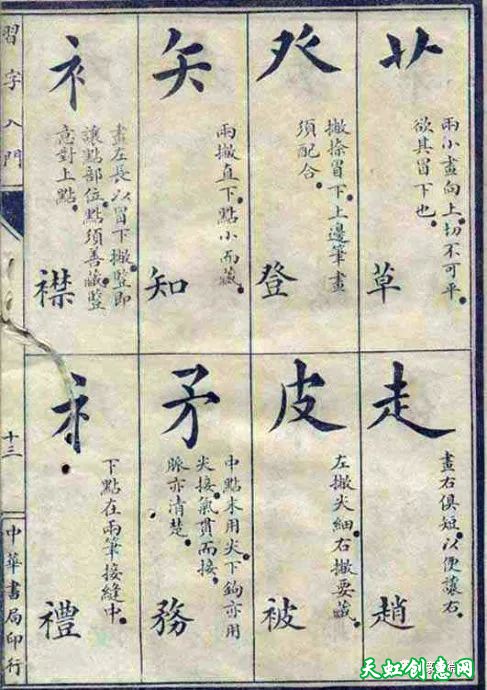 艹
兩小畫向上。切不可平。
欲其冒下也。
草
癶
撇捺冒下。上邊筆畫
須配合。
登
矢
兩撇直下。點小而藏。
知
衤
畫左長以冒下。撇豎即
讓點部位。點須善藏。豎
意對上點。
襟
走
畫右俱短。以便讓右。
趙
皮
左撇尖細。右撇要藏。
被
矛
中點末用尖。下鉤亦用
尖接。氣貫而接。
脈亦清楚。
務
礻
下點在兩筆接縫中。
禮
習字入門
十三
中華書局印行
天虹创意网